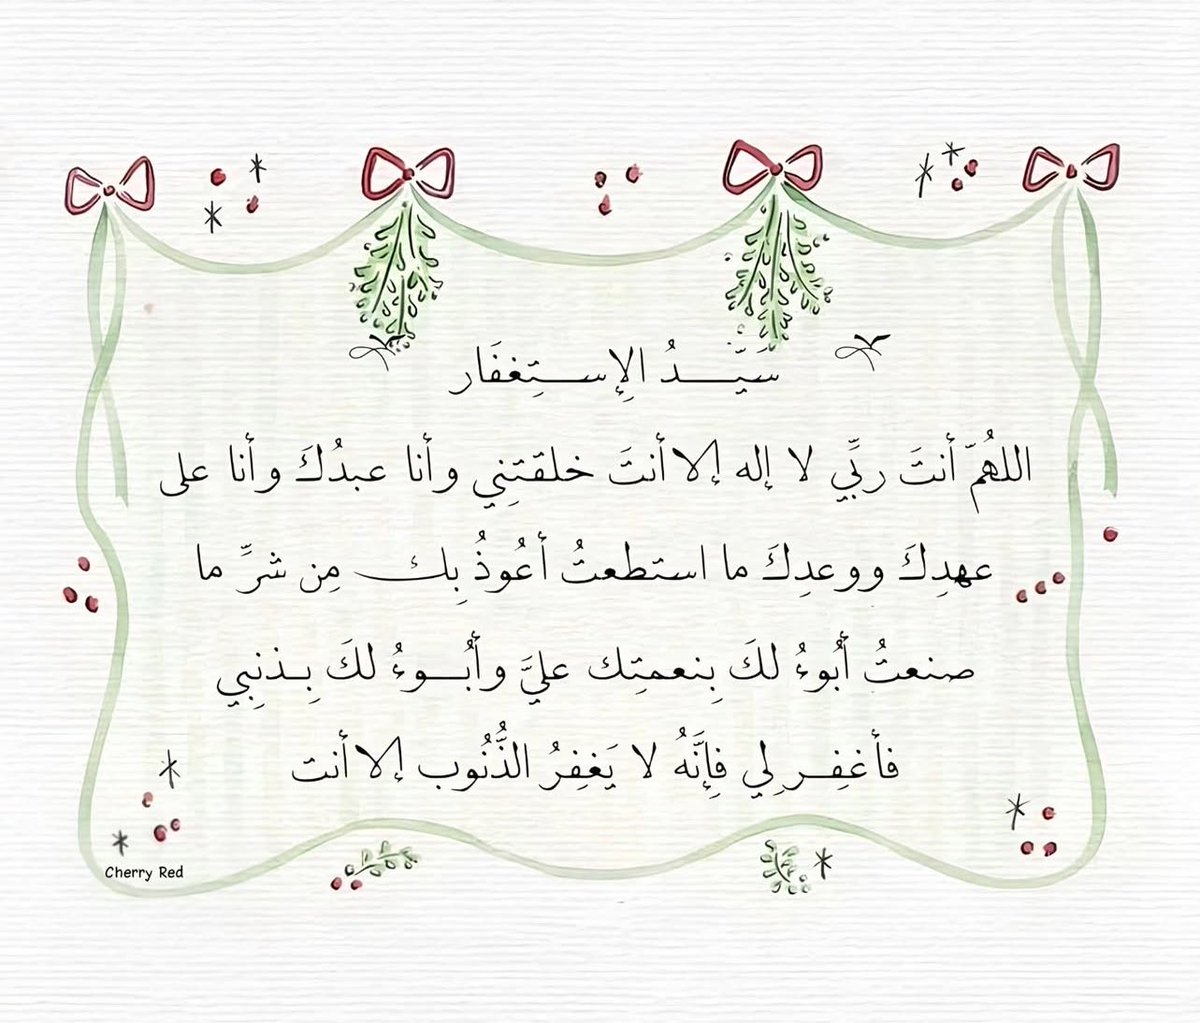 سَيِّـــدُ الِإســـتِغفَار
اللهُمّ أنتَ ربِّي لا إله إلا أنتَ خلقتِني وأنا عبدُكَ وأنا على
عهدِكَ ووعدِكَ ما استطعتُ أعُوذُ بِك مِن شرِّ ما
صنعتُ أبُوءُ لكَ بِنعمتِك عليَّ وأبُـــوءُ لكَ بِـذنبِي
فأغفِـــر لِي فِإنَّهُ لا يَغفِرُ الذُّنُوب إلا أنت
Cherry Red